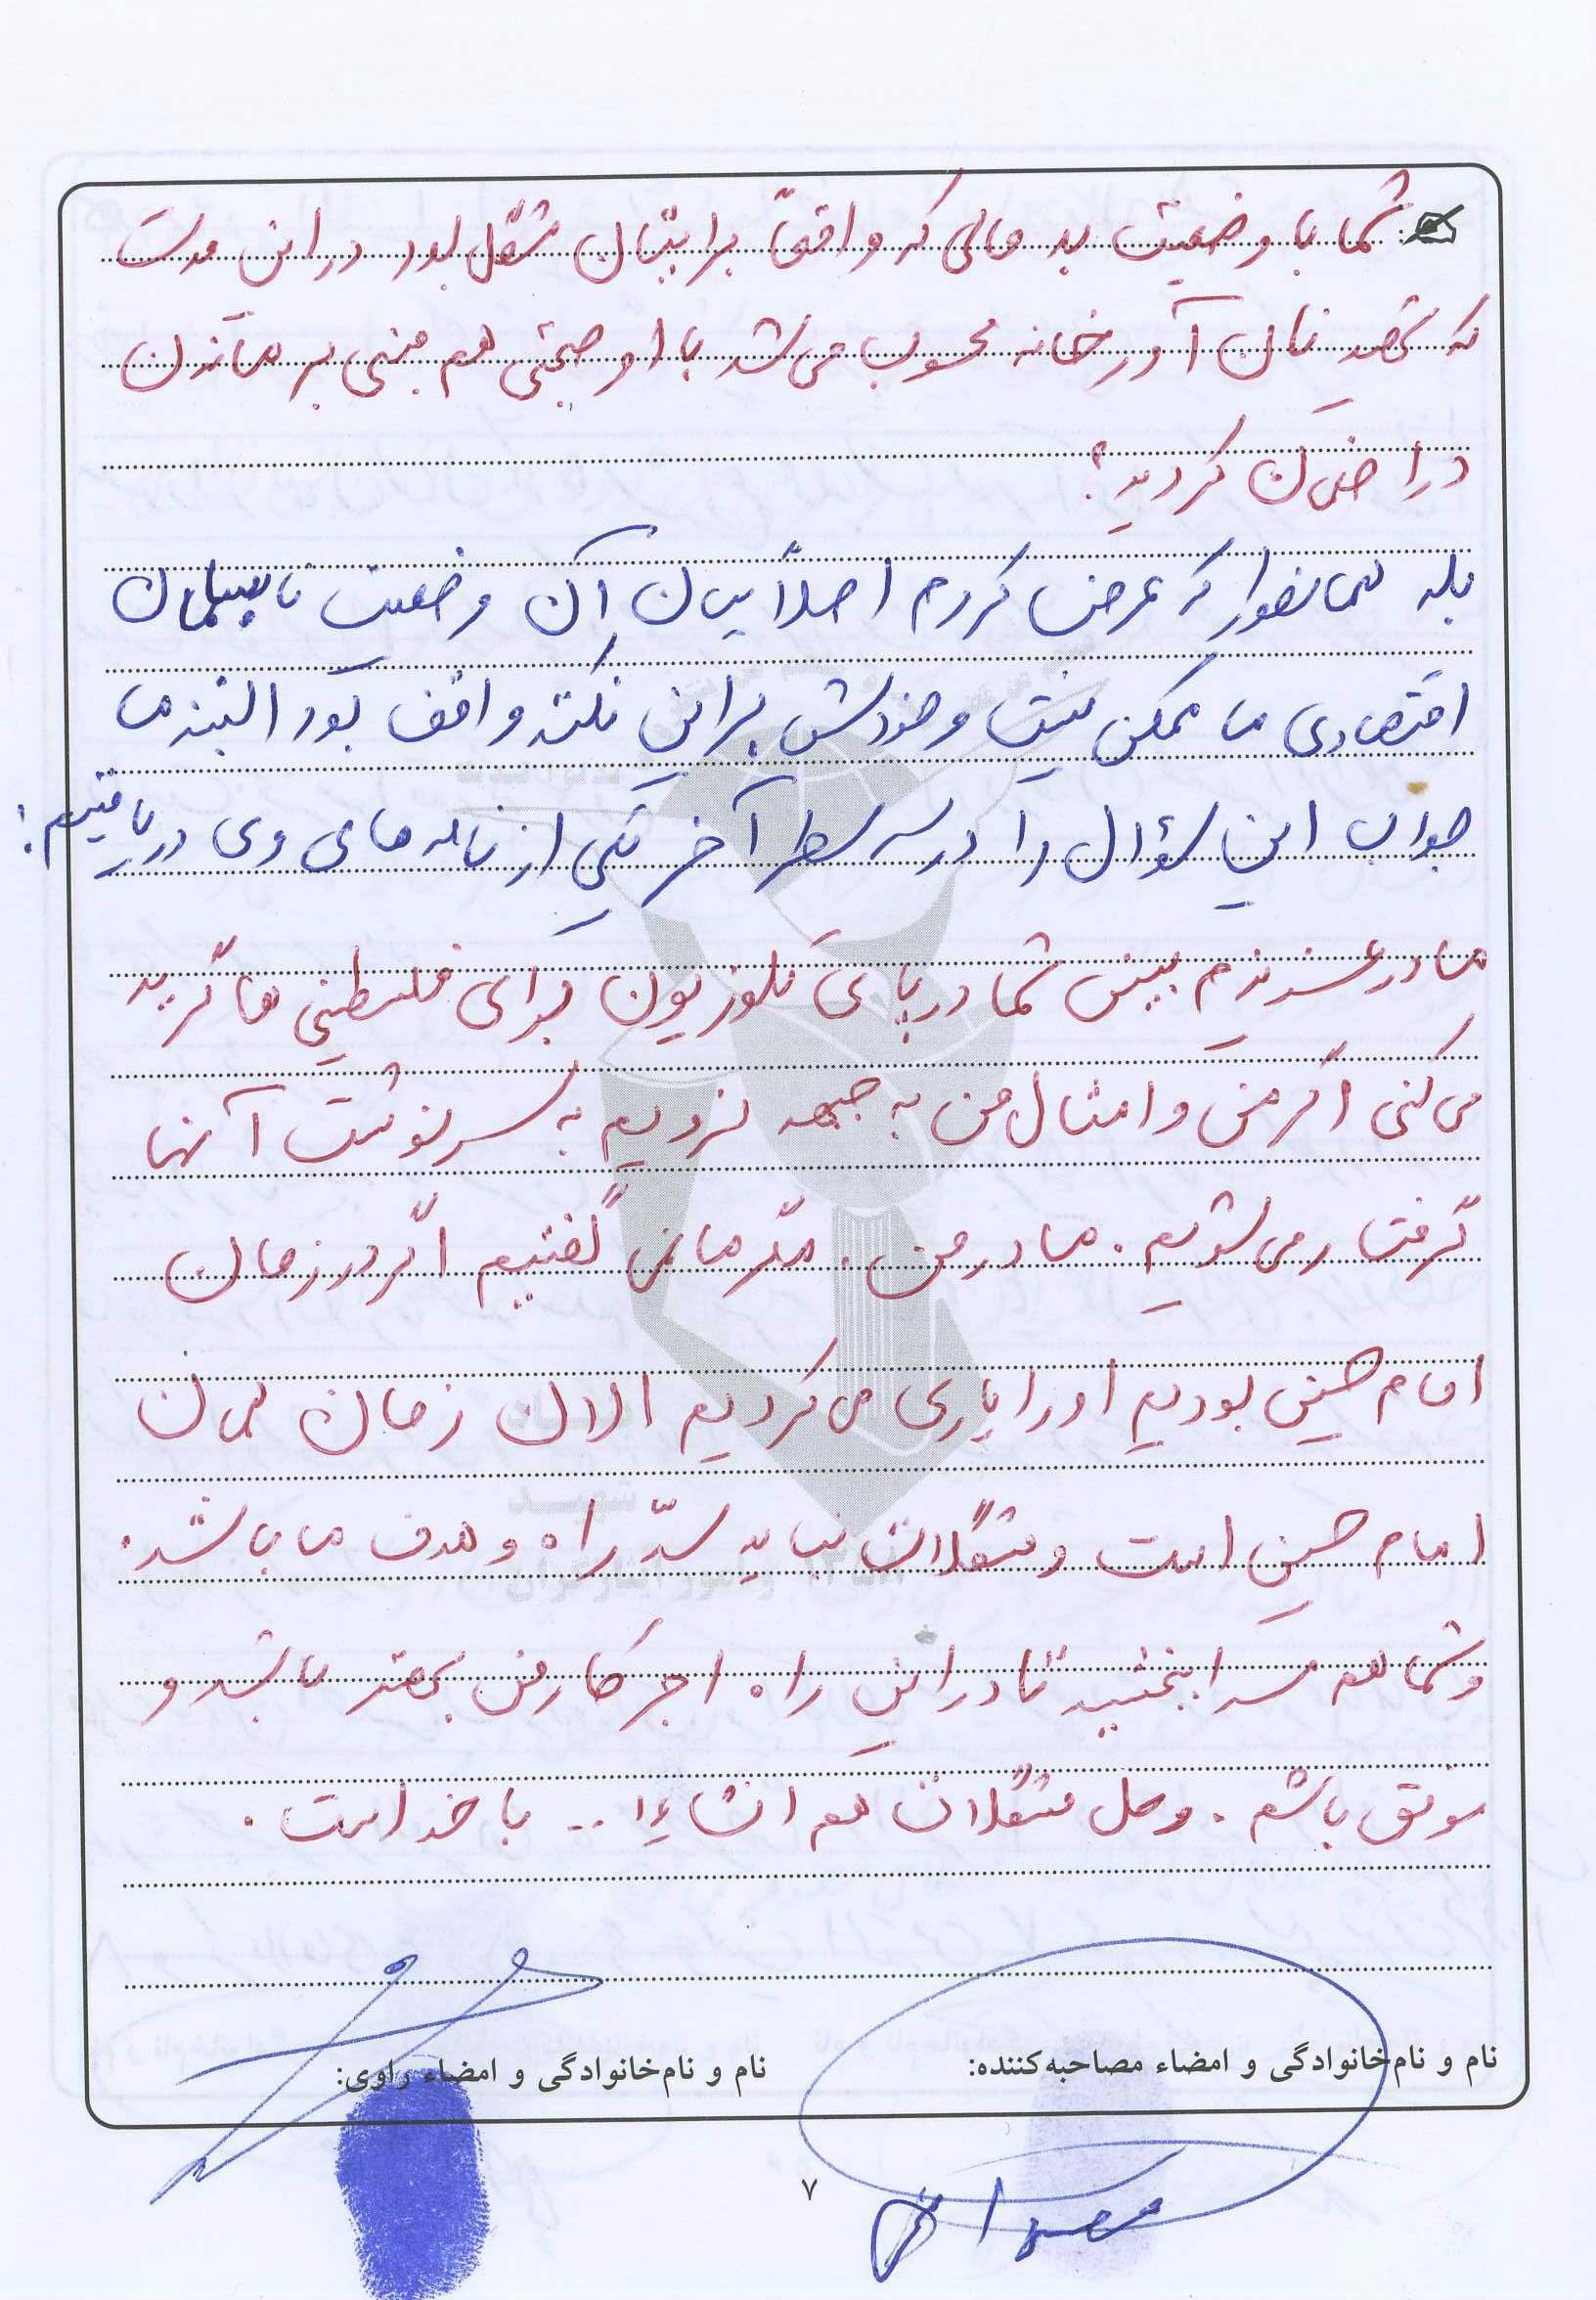 شما با وضعیت بد مالی که واقعاً برایتان مشکل بود در این مدت
که تنها نان آور خانه محسوب می‌شد با او صحبتی هم مبنی بر ماندن
در کردید؟
بله همانطور که عرض کردم اصلاً بیان آن وضعیت نابسامان
اقتصادی ما ممکن نیست و خودش بر این نکته واقف بود البته ما
جواب این سؤال را در سه سطر آخر یکی از نامه های وی دریافتیم:
مادر عزیزم ببین شما در پای تلوزیون برای فلسطینی ها گریه
می کنی اگر من و امثال من به جبهه نرویم به سرنوشت آنها
گرفتار می شویم. مادر من. مگر ما نمی گفتیم اگر در زمان
امام حسین بودیم او را یاری می کردیم الان زمان همان
امام حسین است و مشکلات نباید سدّ راه و هدف ما باشد.
و شما هم مرا ببخشید تا در این راه اجر کار من بیشتر باشد و
موفق باشم. و حل مشکلات هم انشاءا.. با خداست.
نام و نام‌خانوادگی و امضاء مصاحبه‌کننده: نام و نام‌خانوادگی و امضاء راوی:
۷